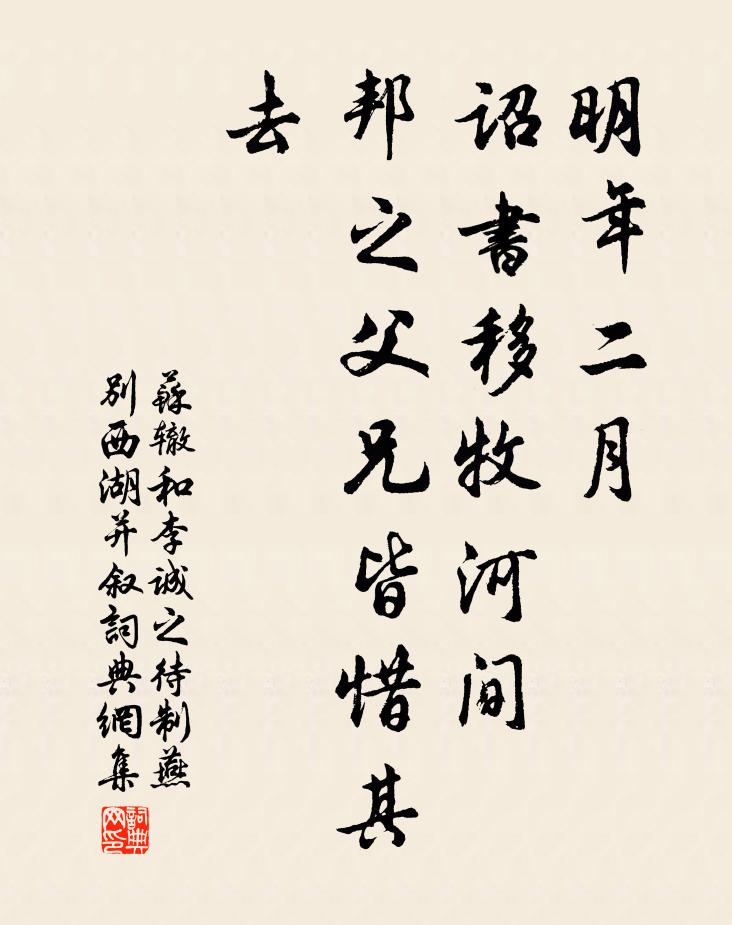 明年二月
詔書移牧河间
邦之父兄皆惜其
去
蘇辙和李诚之待制燕
别西湖并叙詞典網集
詞典网印